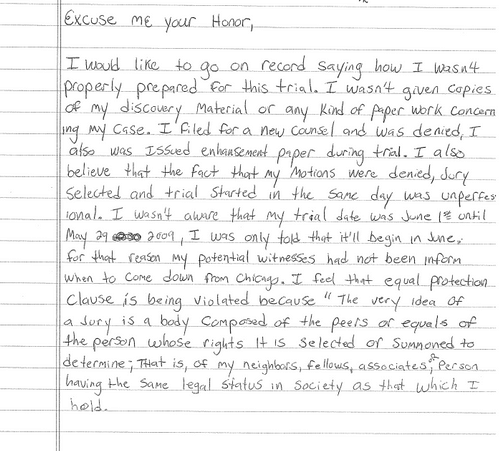 Excuse me your Honor,
I would like to go on record saying how I wasn't
properly prepared for this trial. I wasn't given copies
of my discovery material or any kind of paper work concern
ing my case. I filed for a new counsel and was denied, I
also was issued enhancement paper during trial. I also
believe that the fact that my motions were denied, Jury
selected and trial started in the same day was unprofess
ional. I wasn't aware that my trial date was June 1st until
May 29 2009, I was only told that it'll begin in June.
for that reason my potential witnesses had not been inform
when to come down from Chicago. I feel that equal protection
Clause is being violated because " The very idea of
a Jury is a body composed of the peers or equals of
the person whose rights it is selected or summoned to
determine; That is, of my neighbors, fellows, associates, or Person
having the same legal status in society as that which I
hold.